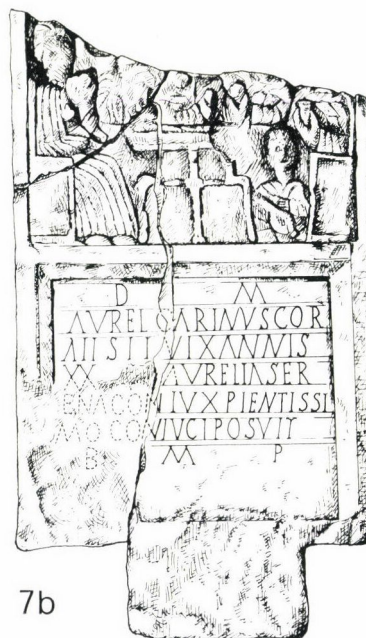 D M
AVREL CARINVS COR
VIX ANNIS
XX AVRELIA SER
ENA CONIVX PIENTISSI
MO CONIVCI POSVIT
B M P
7b